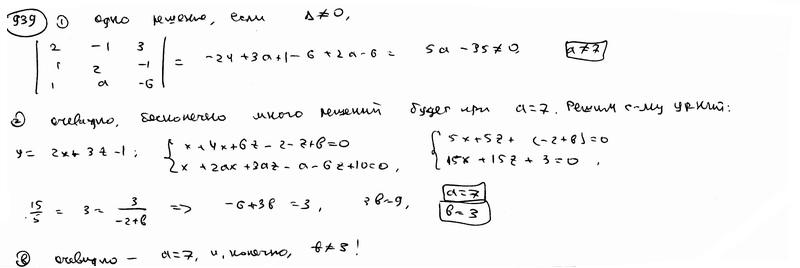 939 ① одно решение, если Δ≠0,
| 2 -1 3 |
| 1 2 -1 | = -24+3a+1-6+2a-6 = 5a-35≠0, a≠7
| 1 a -6 |
② очевидно, бесконечно много решений будет при a=7. Решим с-му ур-ний:
y= 2x+3z-1; { x+4x+6z-2-z+b=0 { 5x+5z+(-2+b)=0
x+2ax+3az-a-6z+10=0, 15x+15z+3=0,
15/5 = 3 = 3/(-2+b) => -6+3b=3, 3b=9, a=7
b=3
③ очевидно - a=7, и, конечно, b≠3!